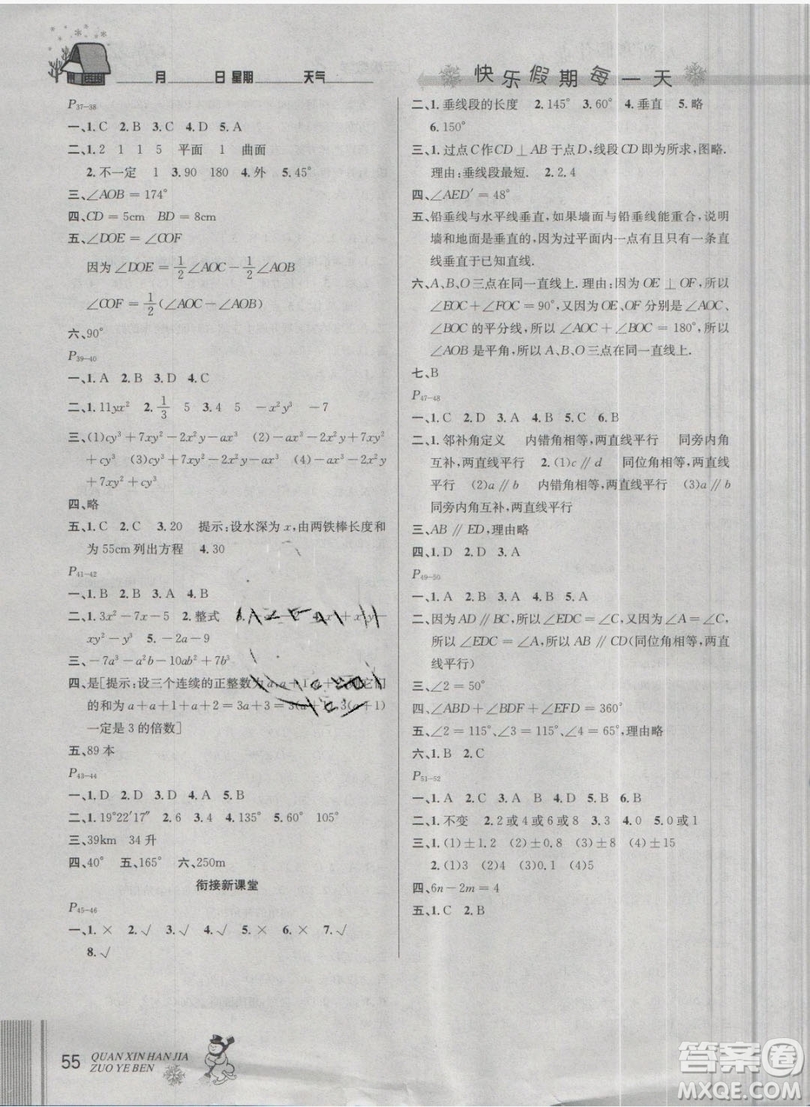 ____月____日 星期____天气____
P37-38
一、1. C  2. B  3. C  4. D  5. A
二、1. 2  1  1  5  平面  1  曲面
2. 不一定  1  3. 90  180  4. 外  5. 二
三、∠AOB = 174°
四、CD = 5cm  BD = 8cm
五、∠DOE = ∠COF
因为 ∠DOE = 1/2∠AOC − 1/2∠AOB
∠COF = 1/2(∠AOC − ∠AOB)
六、90°
P39-40
一、1. A  2. B  3. D  4. C  5. A
二、1. 11yx²  2. 1/3  3. 5  4. 5  5. −x²  6. −7
三、(1)cy³ + 7xy² − 2x²y − ax³  (2) −ax³ − 2x²y + 7xy² + cy³  (3)cy³ + 7xy² − 2x²y − ax³  (4) −ax³ − 2x²y + 7xy² + cy³
四、略
五、1. C  2. C  3. 20  提示:设水深为 x,由两铁棒长度和
为 55cm 列出方程  4. 30
P41-42
一、1. A  2. A  3. A  4. B
二、1. 3x² − 7x − 5  2. 整式
xy² − y³  5. −2a − 9
三、−7a³ − a²b − 10ab² + 7b³
四、是[提示:设三个连续的正整数为 a,a + 1,
的和为 a + a + 1 + a + 2 = 3a + 3 =
一定是 3 的倍数]
五、89 本
P43-44
一、1. D  2. B  3. D  4. A  5. B
二、1. 19°22′17″  2. 6  3. 4  4. 135°  5. 60°
三、39km  34 升
四、40°  五、165°  六、250m
衔接新课堂
P45-46
一、1. ×  2. √  3. √  4. √  5. ×  6. ×  7. √
8. √
55  QUAN XIN HAN JIA
ZUO YE BEN
快乐假期每一天
二、1. 垂线段的长度  2. 145°  3. 60°  4. 垂直  5. 略
6. 150°
三、1. 过点 C 作 CD ⊥ AB 于点 D,线段 CD 即为所求,图略.
理由:垂线段最短.  2. 2.4
四、∠AED′ = 48°
五、铅垂线与水平线垂直,如果墙面与铅垂线能重合,说明
墙和地面是垂直的,因为过平面内一点有且只有一条直
线垂直于已知直线.
六、A、B、O 三点在同一直线上. 理由:因为 OE ⊥ OF,所以
∠EOC + ∠FOC = 90°,又因为 OE、OF 分别是 ∠AOC、
∠BOC 的平分线,所以 ∠AOC + ∠BOC = 180°,所以
∠AOB 是平角,所以 A、B、O 三点在同一直线上.
七、B
P47-48
一、1. C  2. D  3. D  4. A
二、1. 邻补角定义  内错角相等,两直线平行  同旁内角
互补,两直线平行  2. (1)c ∥ d  同位角相等,两直线
平行  (2)a ∥ b  内错角相等,两直线平行  (3)a ∥ b
同旁内角互补,两直线平行
三、AB ∥ ED,理由略
四、1. D  2. D  3. A
P49-50
一、1. A  2. B  3. C  4. B
二、因为 AD ∥ BC,所以 ∠EDC = ∠C,又因为 ∠A = ∠C,
所以 ∠EDC = ∠A,所以 AB ∥ CD(同位角相等,两直
线平行)
三、∠2 = 50°
四、∠ABD + ∠BDF + ∠EFD = 360°
五、∠2 = 115°、∠3 = 65°、∠4 = 115°,理由略
六、1. B  2. C
P51-52
一、1. A  2. B  3. D  4. B  5. D  6. B
二、1. 不变  2. 2 或 4 或 6 或 8  3. 3  4. ±2  5. 0 或 1
三、1. (1) ± 1.2  (2) ± 0.8  (3) ± 2
2. (1)3  (2)4  (3)0.1  (4)0.9
四、6n − 2m = 4
五、1. C  2. B
答案圈
MXQE.COM